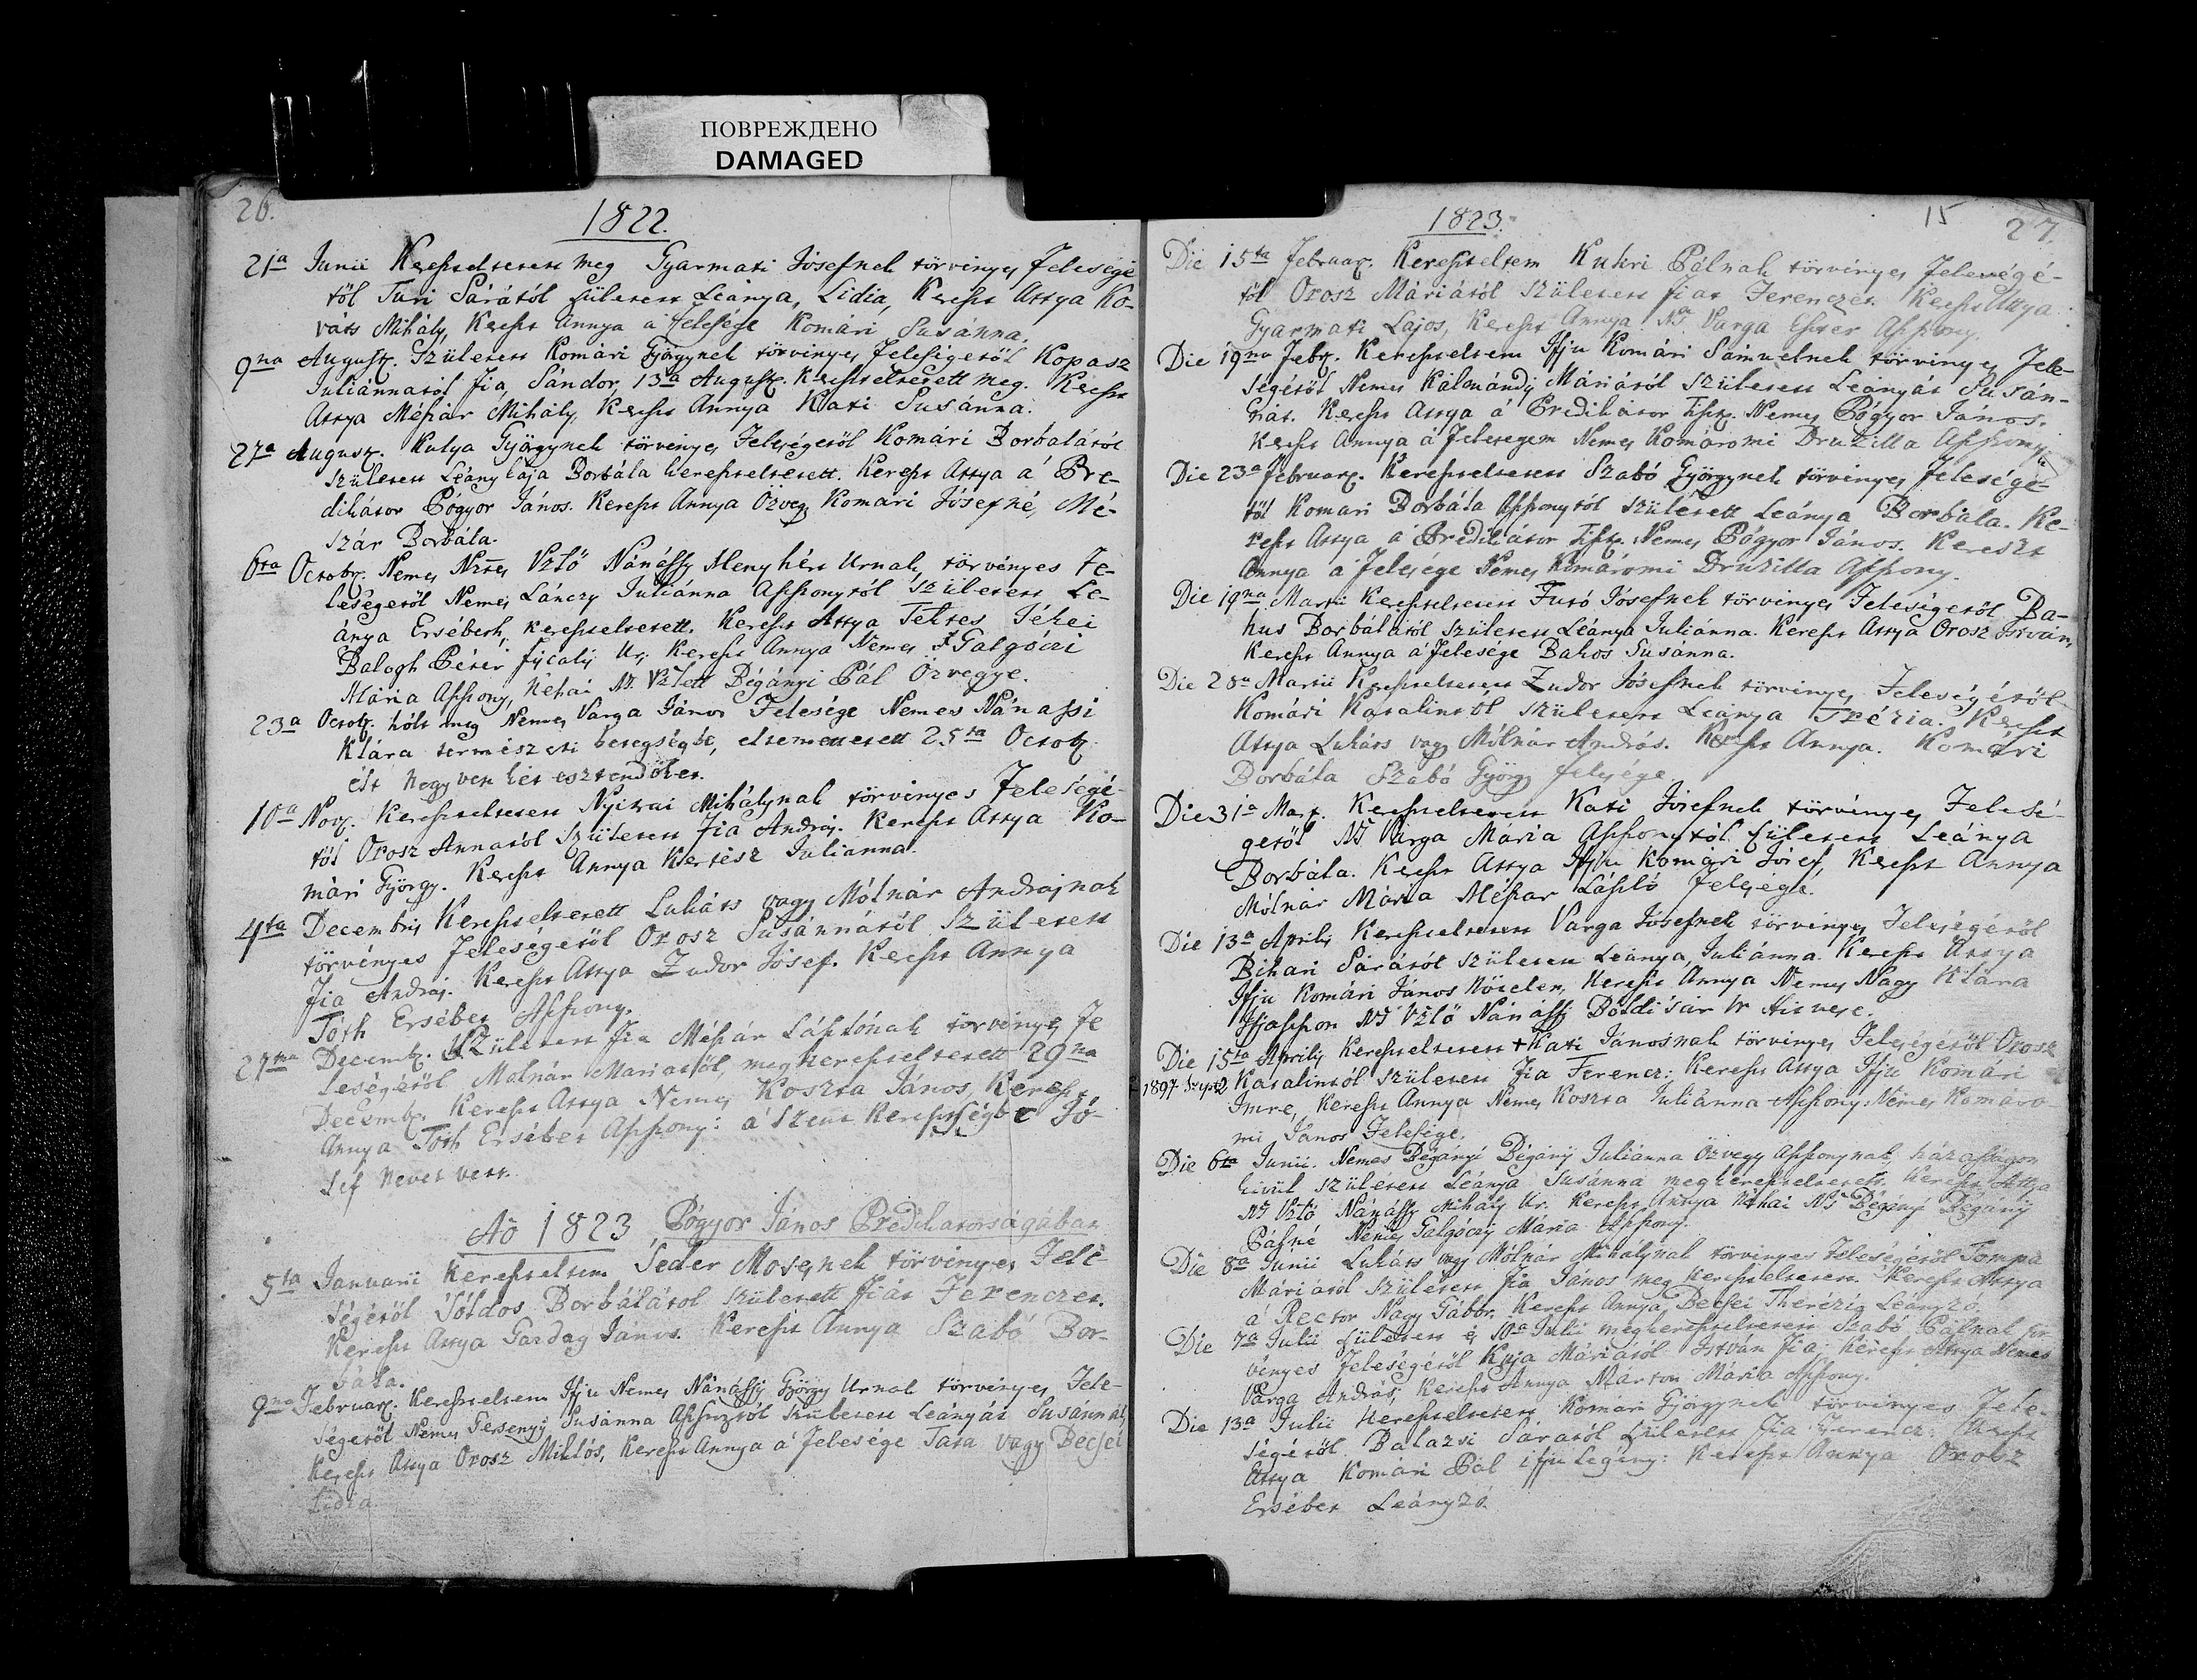 ПОВРЕЖДЕНО
DAMAGED
26.
1822.
21a Junii Kereszteltetett meg Gyarmati Jósefnek törvényes Felesegé
től Turi Sárától születtett Leánya, Lidia, Kereszt Attya Ko-
váts Mihály, Kereszt Annya a' Felesége Komári Susánna.
9na August. Született Komári Györgynek törvényes Feleségetöl Kopasz
Juliánnatól fia, Sándor, 13a August. Kereszteltetett meg. Kereszt
Attya Mészár Mihály, Kereszt Annya Kati Susánna.
27a August. Kutya Györgynek törvényes Feleségetöl Komári Borbálától
Született Leánykája Borbála kereszteltetett. Kereszt Attya á Pre-
dikátor Pógyor János. Kereszt Annya Özvegy Komari Jósefné, Mé-
szár Borbála.
6ta Octobr. Nemes Nztes Vzlö Nánássy Menyhért Urnak, törvényes Fe-
leségetöl Nemes Lánczy Juliánna Asszonytól Született Le-
ánya Ersébeth, kereszteltetett. Kereszt Attya Tettes Tékei
Balogh Péter fiscalis Ur; Kereszt Annya Nemes Galgóczi
Mária Asszony, néhai N. Vzlett Bégányi Pál Özvegye.
23a Octobr. hólt meg Nemes Varga János Felesége Nemes Nánassi
Klára természeti betegségbe, eltemettetett 25ta Octobr.
élt Negyven két esztendőket.
10a Nov. Kereszteltetett Nyitrai Mihálynak törvényes Feleségé-
től Orosz Annatól Született Fia András. Kereszt Attya Ko-
mári György. Kereszt Annya Kertész Julianna.
4ta Decembris Kereszteltetett Lukáts vagy Mólnár Andrásnak
törvényes Feleségetöl Orosz Susánnától Született
Fia András. Kereszt Attya Zudor Jósef. Kereszt Annya
Tóth Ersébet Asszony.
27ma Decemb. Született Fia Mészár Lászlónak törvényes Fe
leségéről Molnár Mariától, megkereszteltetett 29na
Decemb. Kereszt Attya Nemes Koszta János, Kereszt
Annya Tóth Ersébet Asszony: á Szent Keresztségbe Jó-
sef Nevet vett.
Aō 1823 Pógyor János Predikatorságában
5ta Januarii Kereszteltem Seder Mosesnek törvényes Fele-
ségétöl Sóldos Borbálátol született Fiát Ferenczet.
Kereszt Attya Gazdag János. Kereszt Annya Szabó Bor-
bála.
9na Februar. Kereszteltem Ifju Nemes Nánássy György Urnak törvényes Fele-
ségetöl Nemes Gersenyi Susánna Asszonytól született Leányát Susánnát
Kereszt Attya Orosz Miklós, Kereszt Annya á Felesége Tata vagy Becsei
Lidia.
15 27.
1823.
Die 15ta Februar. Kereszteltem Kukri Pálnak törvényes Feleségé-
től Orosz Máriától Született fiat Ferenczet. Kereszt Attya
Gyarmati Lajos, Kereszt Annya Varga Eszter Asszony.
Die 19na Febr. Kereszteltem Ifju Komári Sámuelnek törvényes Fele-
ségétöl Nemes Kálmándy Máriától Született Leányát Susán-
nát. Kereszt Attya á Predikátor Tiszt. Nemes Pógyor János.
Kereszt Annya á Feleségem Nemes Komáromi Druzilla Asszony
Die 23a Februar. Kereszteltetett Szabó Györgynek törvényes Felesége-
től Komari Borbála Asszonytól született Leánya Borbála. Ke-
reszt Attya á Predikátor Tiszt. Nemes Pógyor János. Kereszt
Annya á Felesége Nemes Komáromi Druzilla Asszony.
Die 19na Martii Kereszteltetett Futó Jósefnek törvényes Feleségetöl Ba-
kus Borbálától született Leánya Juliánna. Kereszt Attya Orosz István,
Kereszt Annya á Felesége Bakos Susánna.
Die 28a Martii Kereszteltetett Zudor Jósefnek törvényes Feleségétöl
Komári Katalintól született Leánya Trézia. Kereszt
Attya Lukáts vagy Mólnár András. Kereszt Annya Komári
Borbála Szabó György felesége.
Die 31a Mart. Kereszteltetett Kati Jósefnek törvényes Felesé-
getöl Varga Mária Asszonytól született Leánya
Borbála. Kereszt Attya Ifju Komári Jósef, Kereszt Annya
Mólnár Mária Mészár László Felesége.
Die 13a Aprilis Kereszteltetett Varga Jósefnek törvényes Feleségéröl
Bihari Sárától született Leánya, Juliánna. Kereszt Attya
Ifju Komári János Nőtelen, Kereszt Annya Nemes Nagy Klára
Ifjasszon Vzlő Nánássy Boldisár Ur Hitvese.
Die 15ta Aprilis Kereszteltetett + Kati Jánosnak törvényes Feleségétöl Orosz
1897 Szept 2 Katalintól született Fia Ferencz: Kereszt Attya Ifju Komári
Imre, Kereszt Annya Nemes Koszta Juliánna Asszony: Nemes Komáro
mi János Felesége.
Die 6ta Junii. Nemes Bégányi Bégány Julianna özvegy Asszonynak, házasságon
kívül született Leánya Susánna megkereszteltetett. Kereszt Attya
Vzlö Nánássy Mihály Ur. Kereszt Annya Néhai Bégányi Bégány
Pálné Nemes Galgóczy Mária Asszony.
Die 8a Junii Lukáts vagy Mólnár Mihálynak törvényes Feleségéröl Tompa
Máriától Született Fia János meg kereszteltetett. Kereszt Attya
á Rector Nagy Gábor. Kereszt Annya, Becsei Therézia Leányzó.
Die 7a Julii született és 10a Julii megkereszteltetett Szabó Pálnak tör
vényes Feleségéröl Kuja Máriától István Fia; Kereszt Attya Nemes
Varga András, Kereszt Annya Marton Mária Asszony.
Die 13a Julii Kereszteltetett Komári Györgynek törvényes Fele-
ségétöl Balazsi Sárától született Fia Ferencz. Kereszt
Attya Komári Pál ifju Legény: Kereszt Annya Orosz
Ersébet Leányzó.